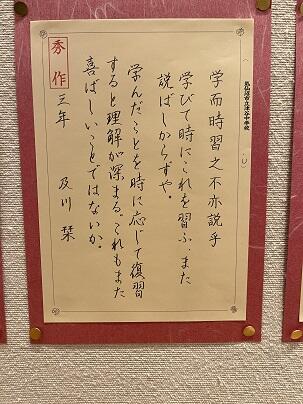 気仙沼市立津谷中学校
学而時習之不亦説乎
学びて時にこれを習ふ、また
説ばしからずや。
学んだことを時に応じて復習
すると理解が深まる。これもまた
喜ばしいことではないか。
秀作
三年 及川 栞